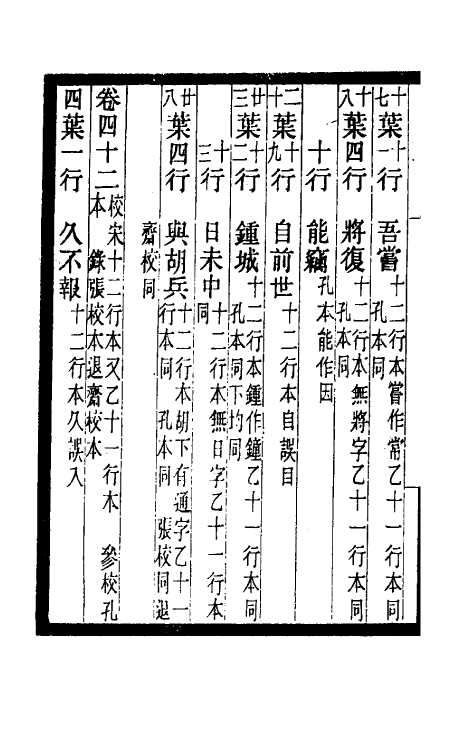 十七葉十一行　吾嘗十二行本嘗作常乙十一行本同孔本同
十八葉四行　將復十二行本無將字乙十一行本同孔本同
十行　能竊孔本能作因
二十葉十九行　自前世十二行本自誤目
廿三葉十二行　鍾城十二行本鍾作鐘乙十一行本同孔本同下均同
十三行　日未中十二行本無日字乙十一行本同
廿八葉四行　與胡兵十二行本胡下有通字乙十一行本同　孔本同　張校同退
齋校同
卷四十二校宋十二行本又乙十一行本　參校孔本　錄張校本退齋校本
四葉一行　久不報十二行本久誤入